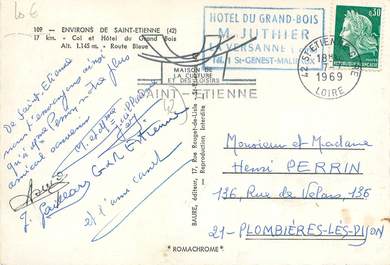 10€
109 - ENVIRONS DE SAINT-ETIENNE (42)
17 km. - Col et Hôtel du Grand Bois
Alt. 1.145 m. - Route Bleue
HOTEL DU GRAND-BOIS
M. JUTHIER
VERSANNE
Tél. 1 St-GENEST-MALIFAUX
42 ST ETIENNE
18H
7-
1969
LOIRE
0,30
MAISON
DE LA CULTURE
ET DES LOISIRS
SAINT-ETIENNE
(42)
De Saint-Etienne
nous envoyons ainsi
qu'à Mme Perrin notre plus
amical souvenir
et l'ami
BAURE, éditeur, 17, Rue Rouget-de-Lisle
Reproduction interdite
Monsieur et Madame
Henri PERRIN
136, Rue de Velars, 136
21 - PLOMBIÈRES-LES-DIJON
"ROMACHROME"